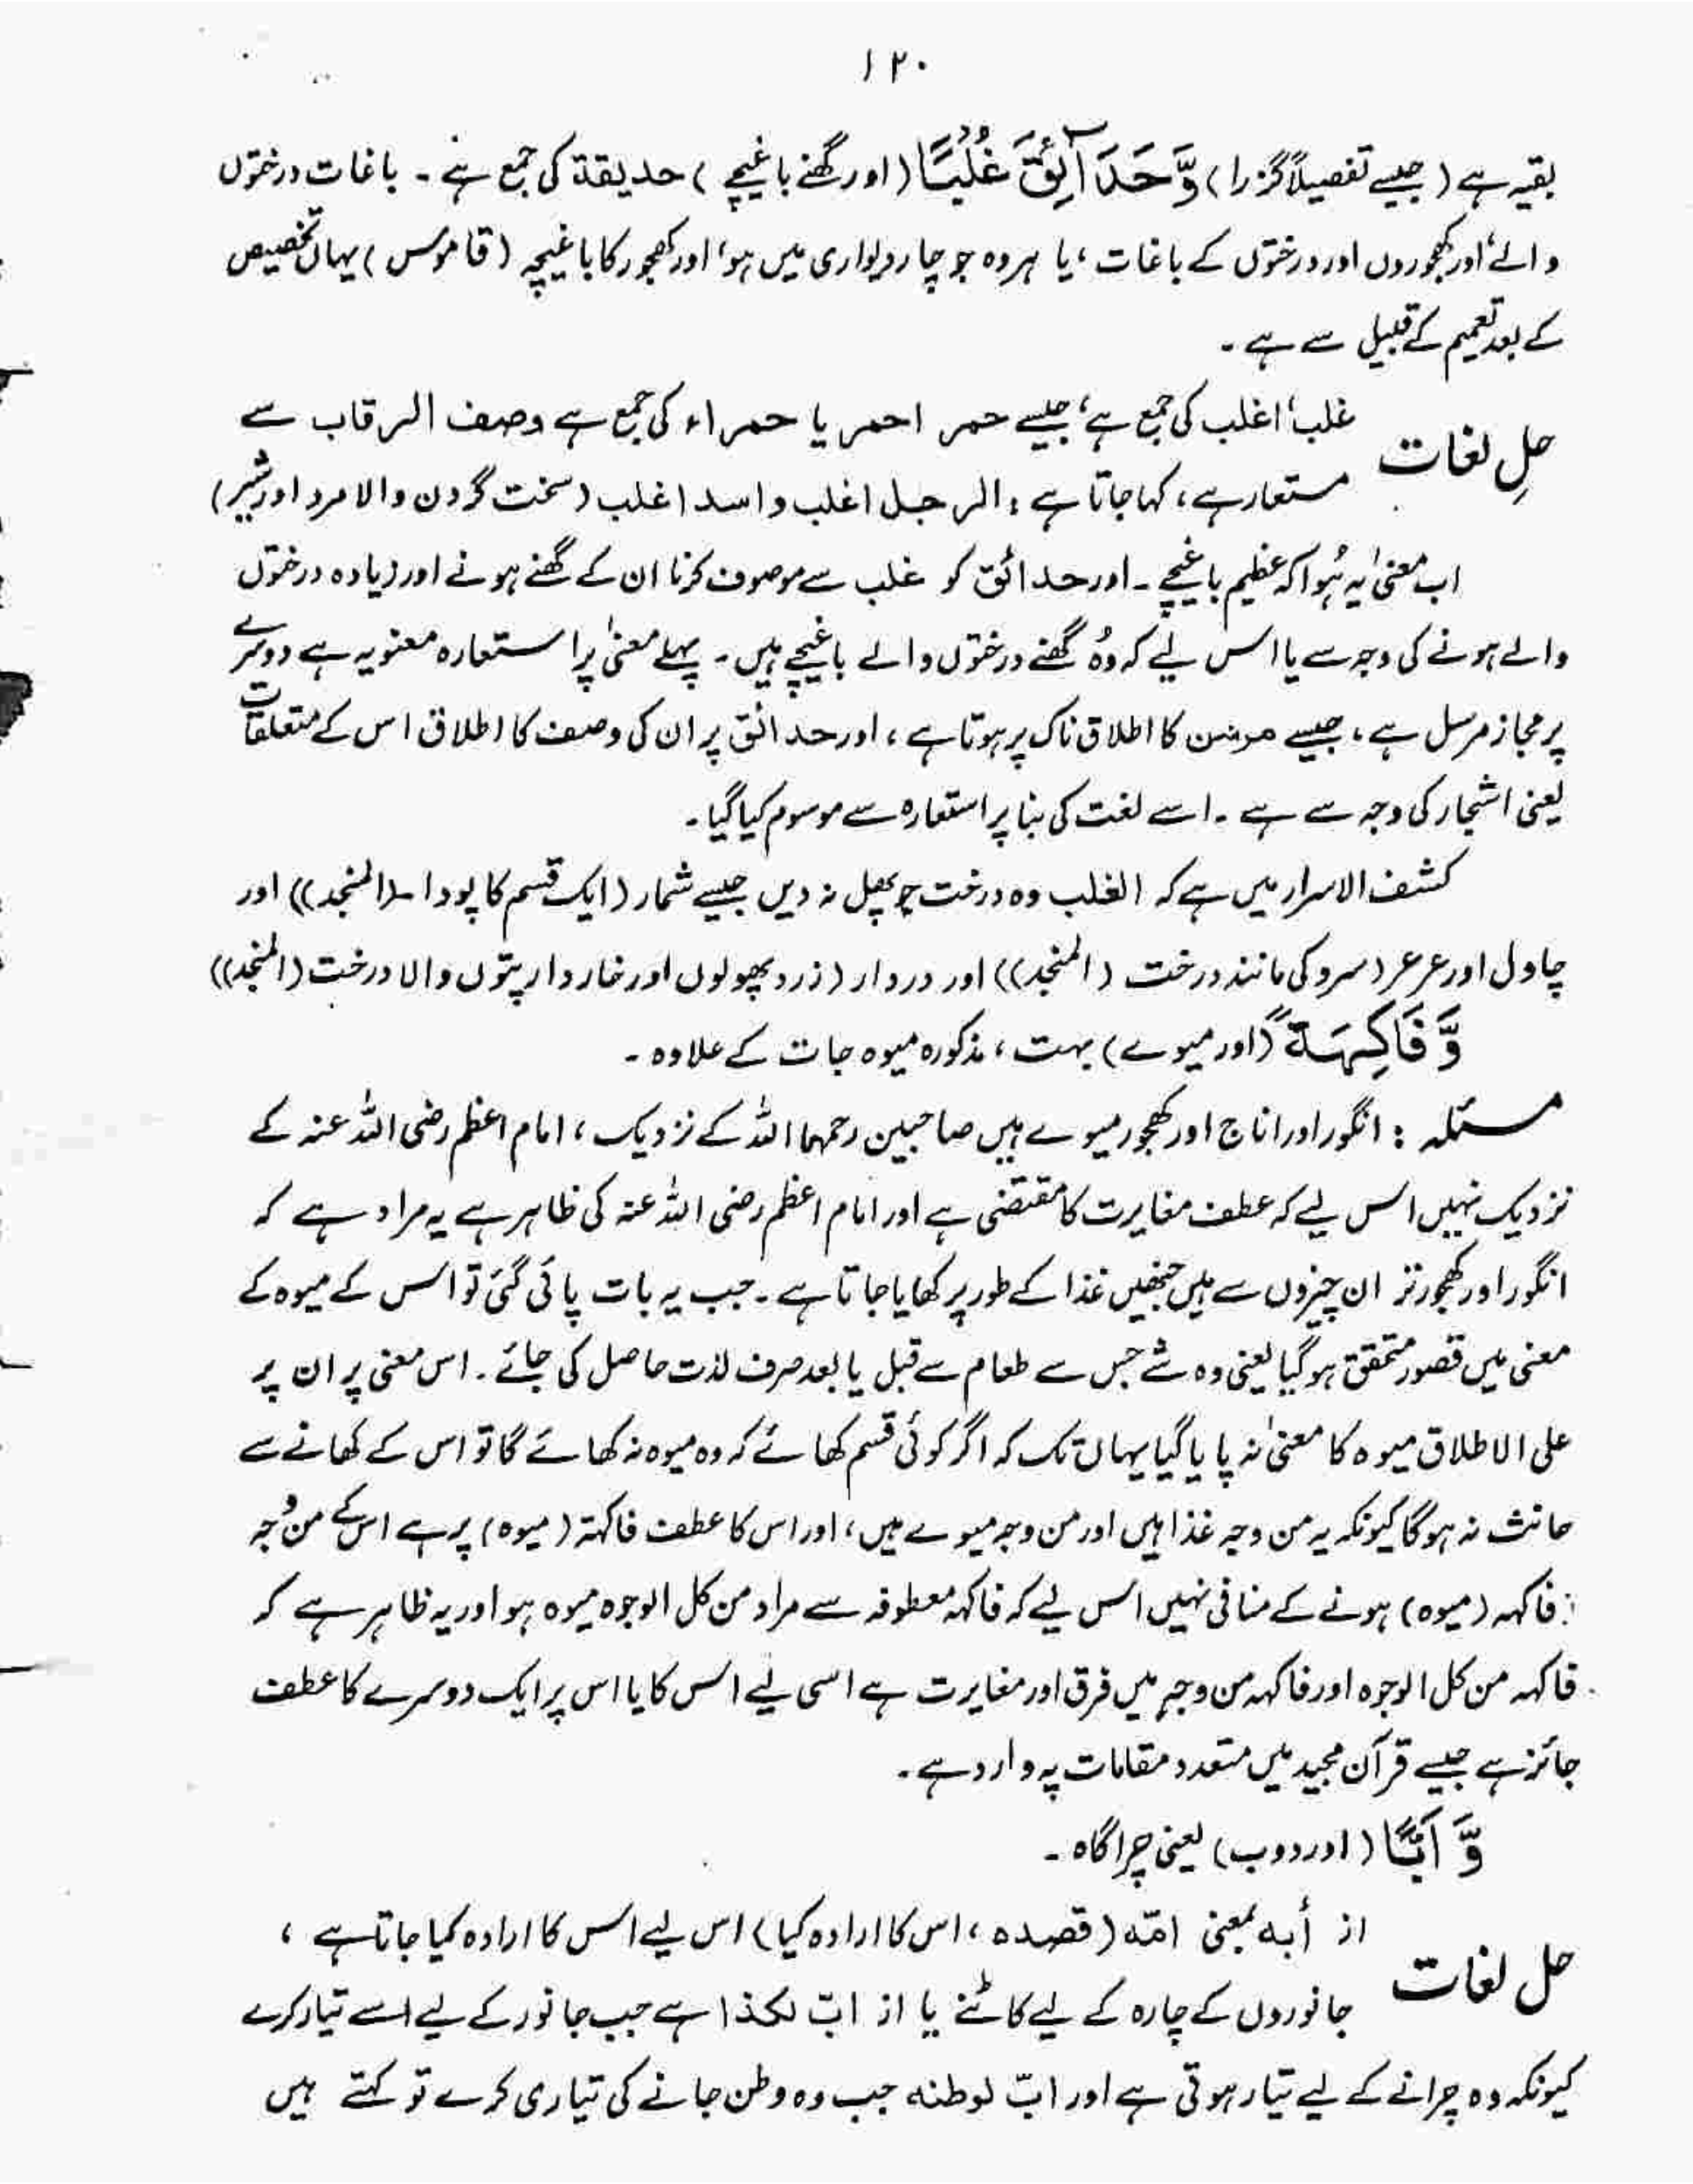 ۱۲۰
بقیہ ہے (جیسے تفصیلاً گزرا) وَّحَدَآئِقَ غُلْبًا (اور گھنے باغیچے) حدیقة کی جمع ہے۔ باغات درختوں
والے، اور کھجوروں اور درختوں کے باغات، یا ہر وہ جو چار دیواری میں ہو، اور کھجور کا باغیچہ (قاموس) یہاں تخصیص
کے بعد تعمیم کے قبیل سے ہے۔
حلِ لغات غلب، اغلب کی جمع ہے، جیسے حمر احمر یا حمراء کی جمع ہے وصف الرقاب سے
مستعار ہے، کہا جاتا ہے: الرجل اغلب و اسد اغلب (سخت گردن والا مرد اور شیر)
اب معنیٰ یہ ہُوا کہ عظیم باغیچے۔ اور حدائق کو غلب سے موصوف کرنا ان کے گھنے ہونے اور زیادہ درختوں
والے ہونے کی وجہ سے یا اس لیے کہ وُہ گھنے درختوں والے باغیچے ہیں۔ پہلے معنیٰ پر استعارہ معنویہ ہے دوسرے
پر مجاز مرسل ہے، جیسے مرسن کا اطلاق ناک پر ہوتا ہے، اور حدائق پر ان کی وصف کا اطلاق اس کے متعلقات
یعنی اشجار کی وجہ سے ہے۔ اسے لغت کی بنا پر استعارہ سے موسوم کیا گیا۔
کشف الاسرار میں ہے کہ الغلب وہ درخت جو پھل نہ دیں جیسے شمار (ایک قسم کا پودا۔ (المنجد)) اور
چاول اور عرعر (سرو کی مانند درخت (المنجد)) اور دردار (زرد پھولوں اور خاردار پتوں والا درخت (المنجد))
وَّ فَاكِهَةً (اور میوے) بہت، مذکورہ میوہ جات کے علاوہ۔
مسئلہ: انگور اور اناج اور کھجور میوے ہیں صاحبین رحمہما اللہ کے نزدیک، امام اعظم رضی اللہ عنہ کے
نزدیک نہیں اس لیے کہ عطف مغایرت کا مقتضی ہے اور امام اعظم رضی اللہ عنہ کی ظاہر ہے یہ مراد ہے کہ
انگور اور کھجور تر ان چیزوں سے ہیں جنھیں غذا کے طور پر کھایا جاتا ہے۔ جب یہ بات پائی گئی تو اس کے میوہ کے
معنی میں قصور متحقق ہو گیا یعنی وہ شے جس سے طعام سے قبل یا بعد صرف لذت حاصل کی جائے۔ اس معنی پر ان پر
علی الاطلاق میوہ کا معنیٰ نہ پایا گیا یہاں تک کہ اگر کوئی قسم کھائے کہ وہ میوہ نہ کھائے گا تو اس کے کھانے سے
حانث نہ ہوگا کیونکہ یہ من وجہ غذا ہیں اور من وجہ میوے ہیں، اور اس کا عطف فاکہة (میوہ) پر ہے اس کے من وُجہ
فاکہہ (میوہ) ہونے کے منافی نہیں اس لیے کہ فاکہہ معطوفہ سے مراد من کل الوجوہ میوہ ہو اور یہ ظاہر ہے کہ
فاکہہ من کل الوجوہ اور فاکہہ من وجہٍ میں فرق اور مغایرت ہے اسی لیے اس کا یا اس پر ایک دوسرے کا عطف
جائز ہے جیسے قرآن مجید میں متعدد مقامات پہ وارد ہے۔
وَّ اَبًّا (اور دوب) یعنی چراگاہ۔
حل لغات از أبه بمعنی امّه (قصدہ، اس کا ارادہ کیا) اس لیے اس کا ارادہ کیا جاتا ہے،
جانوروں کے چارہ کے لیے کاٹنے یا از ابّ لکذا ہے جب جانور کے لیے اسے تیار کرے
کیونکہ وہ چرانے کے لیے تیار ہوتی ہے اور ابّ لوطنه جب وہ وطن جانے کی تیاری کرے تو کہتے ہیں